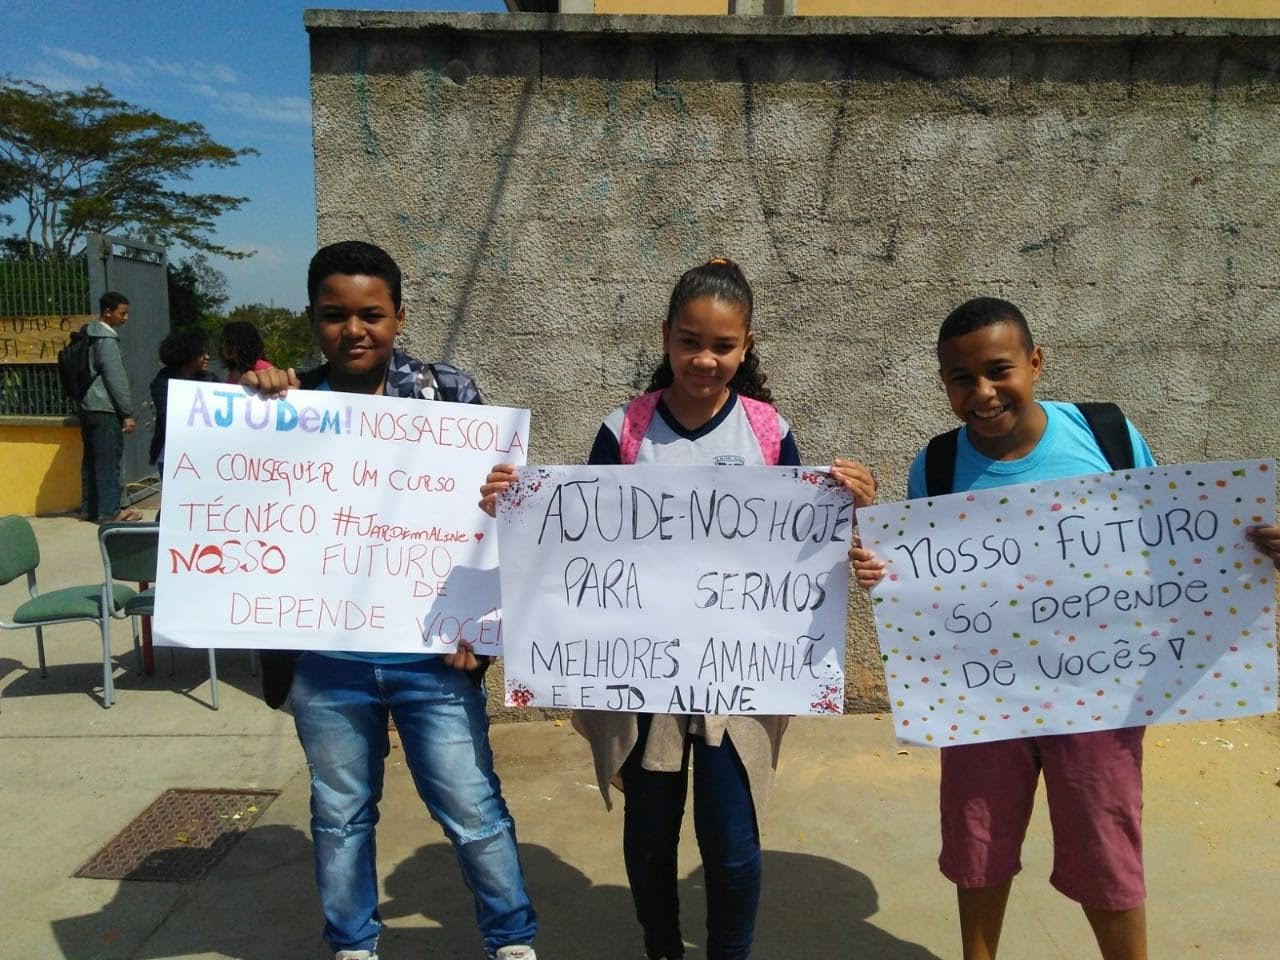 AJUDEM! NOSSA ESCOLA
A CONSEGUIR UM CURSO
TÉCNICO. #JARDIMALINE
NOSSO FUTURO
DEPENDE DE VOCÊ!
AJUDE-NOS HOJE
PARA SERMOS
MELHORES AMANHÃ.
E.E JD ALINE
NOSSO FUTURO
SÓ DEPENDE
DE VOCÊS!
FUTURO